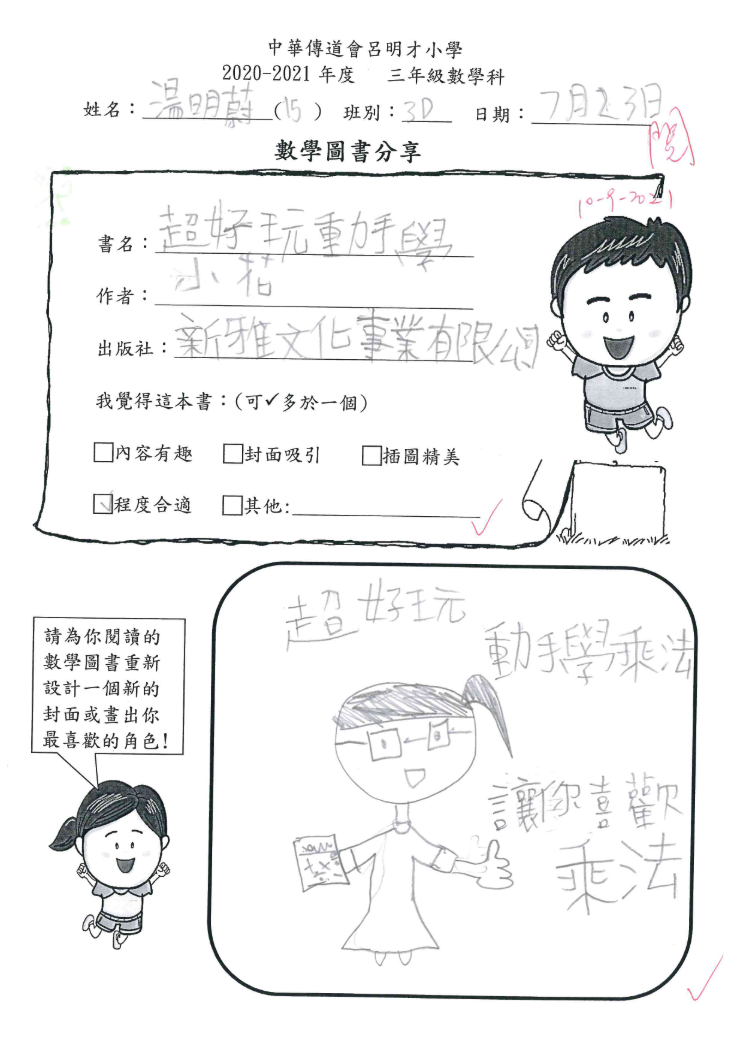 中華傳道會呂明才小學
2020-2021 年度 三年級數學科
姓名：湯明蔚(15) 班別：3D 日期：7月23日
閱
數學圖書分享
10-9-2021
書名：超好玩動手學
作者：小花
出版社：新雅文化事業有限公司
我覺得這本書：(可✓多於一個)
□內容有趣 □封面吸引 □插圖精美
☑程度合適 □其他:
請為你閱讀的
數學圖書重新
設計一個新的
封面或畫出你
最喜歡的角色!
超好玩
動手學乘法
讓你喜歡
乘法